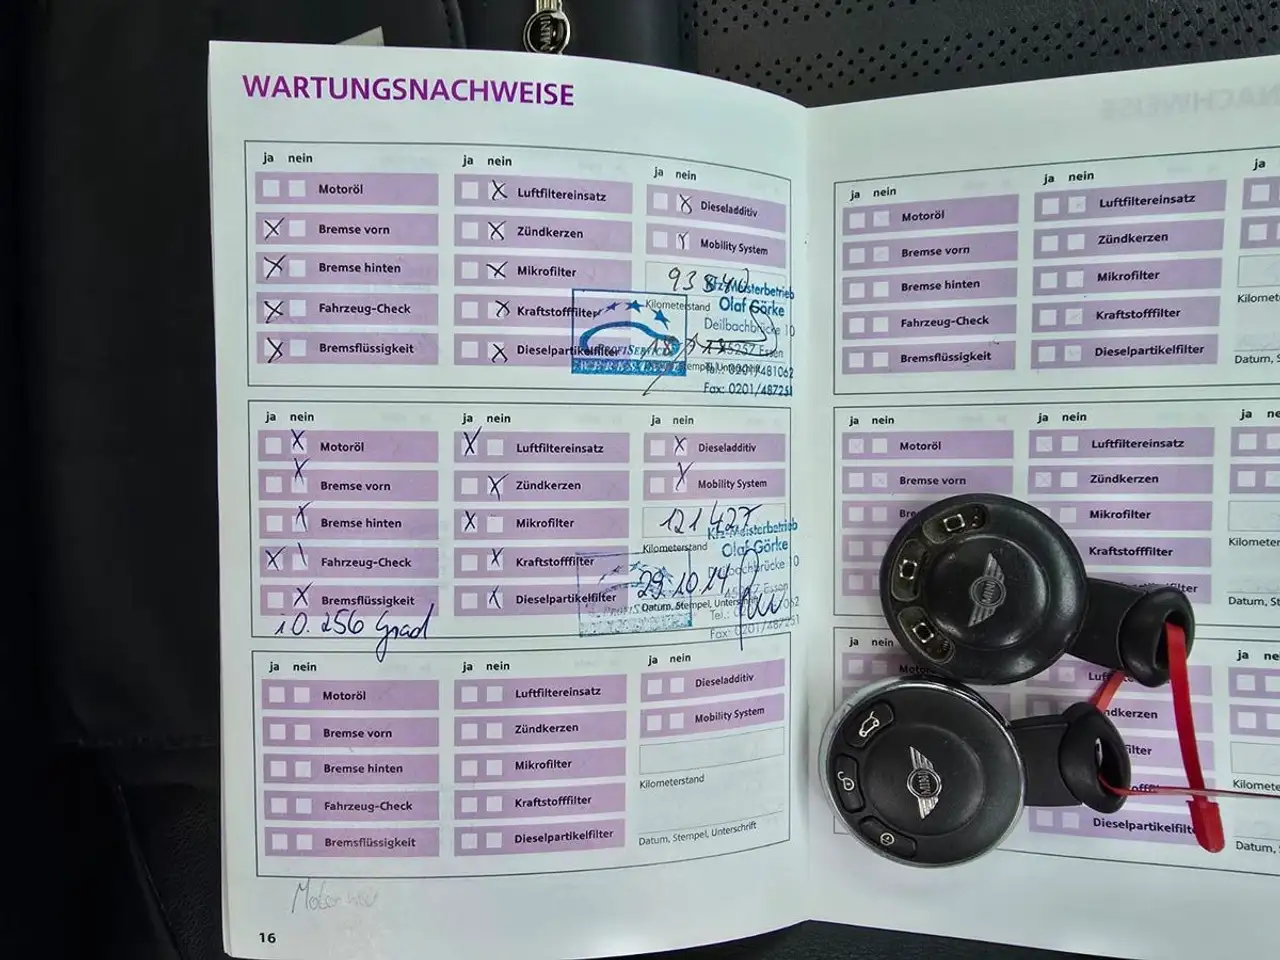 WARTUNGSNACHWEISE
ja nein
Motoröl
Bremse vorn
Bremse hinten
Fahrzeug-Check
Bremsflüssigkeit
ja nein
Luftfiltereinsatz
Zündkerzen
Mikrofilter
Kraftstofffilter
Dieselpartikelfilter
ja nein
Dieseladditiv
Mobility System
Kilometerstand
Kfz-Meisterbetrieb
Olaf Görke
Deilbachbrücke 10
45257 Essen
Tel.: 0201/481062
Fax: 0201/487251
PROFISERVICE
ja nein
Motoröl
Bremse vorn
Bremse hinten
Fahrzeug-Check
Bremsflüssigkeit
10. 256 Grad
ja nein
Luftfiltereinsatz
Zündkerzen
Mikrofilter
Kraftstofffilter
Dieselpartikelfilter
ja nein
Dieseladditiv
Mobility System
121 427
Kilometerstand
Kfz-Meisterbetrieb
Olaf Görke
Deilbachbrücke 10
29.10.14
Datum, Stempel, Unterschrift
Fax: 0201/487251
ja nein
Motoröl
Bremse vorn
Bremse hinten
Fahrzeug-Check
Bremsflüssigkeit
ja nein
Luftfiltereinsatz
Zündkerzen
Mikrofilter
Kraftstofffilter
Dieselpartikelfilter
ja nein
Dieseladditiv
Mobility System
Kilometerstand
Datum, Stempel, Unterschrift
16
ja nein
Motoröl
Bremse vorn
Bremse hinten
Fahrzeug-Check
Bremsflüssigkeit
ja nein
Luftfiltereinsatz
Zündkerzen
Mikrofilter
Kraftstofffilter
Dieselpartikelfilter
ja
Kilome
Datum, S
ja nein
Motoröl
Bremse vorn
Bre
ja nein
Luftfiltereinsatz
Zündkerzen
Mikrofilter
Kraftstofffilter
ja ne
Kilomete
Datum, St
Motor
Luf
ndkerzen
filter
Dieselpartikelfilt
ja nei
Kilomete
Datum, S
MINI
MINI
MINI